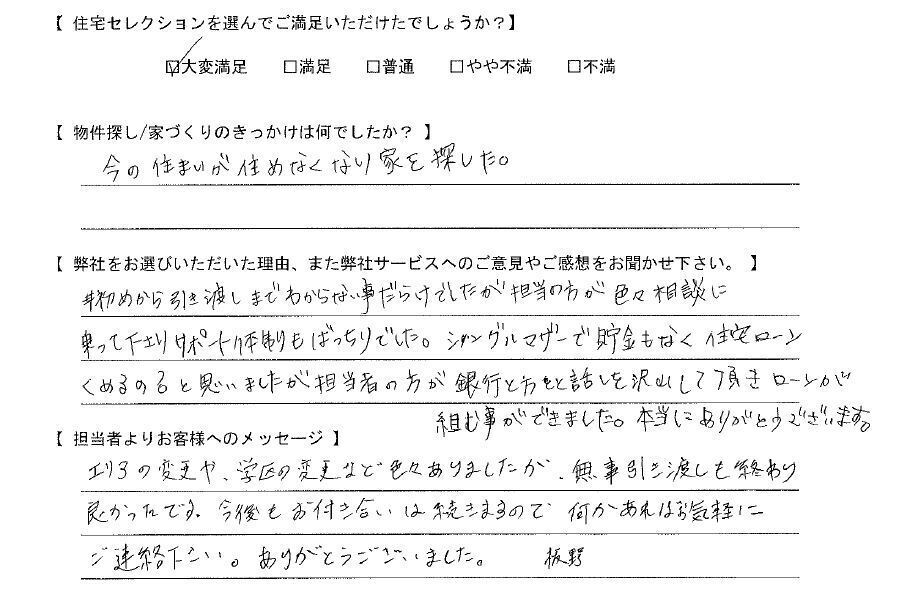 【 住宅セレクションを選んでご満足いただけたでしょうか？】
☑大変満足 □満足 □普通 □やや不満 □不満
【 物件探し/家づくりのきっかけは何でしたか？ 】
今の住まいが住めなくなり家を探した。
【 弊社をお選びいただいた理由、また弊社サービスへのご意見やご感想をお聞かせ下さい。 】
初めから引き渡しまでわからない事だらけでしたが担当の方が色々相談に
乗って下さりサポート体制もばっちりでした。シングルマザーで貯金もなく住宅ローン
くめるのると思いましたが担当者の方が銀行と方とと話しを沢山して頂きローンが
組む事ができました。本当にありがとうございます。
【 担当者よりお客様へのメッセージ 】
エリアの変更や、学区の変更など色々ありましたが、無事引き渡しも終わり
良かったです。今後もお付き合いは続きますので何かあればお気軽に
ご連絡下さい。ありがとうございました。 板野